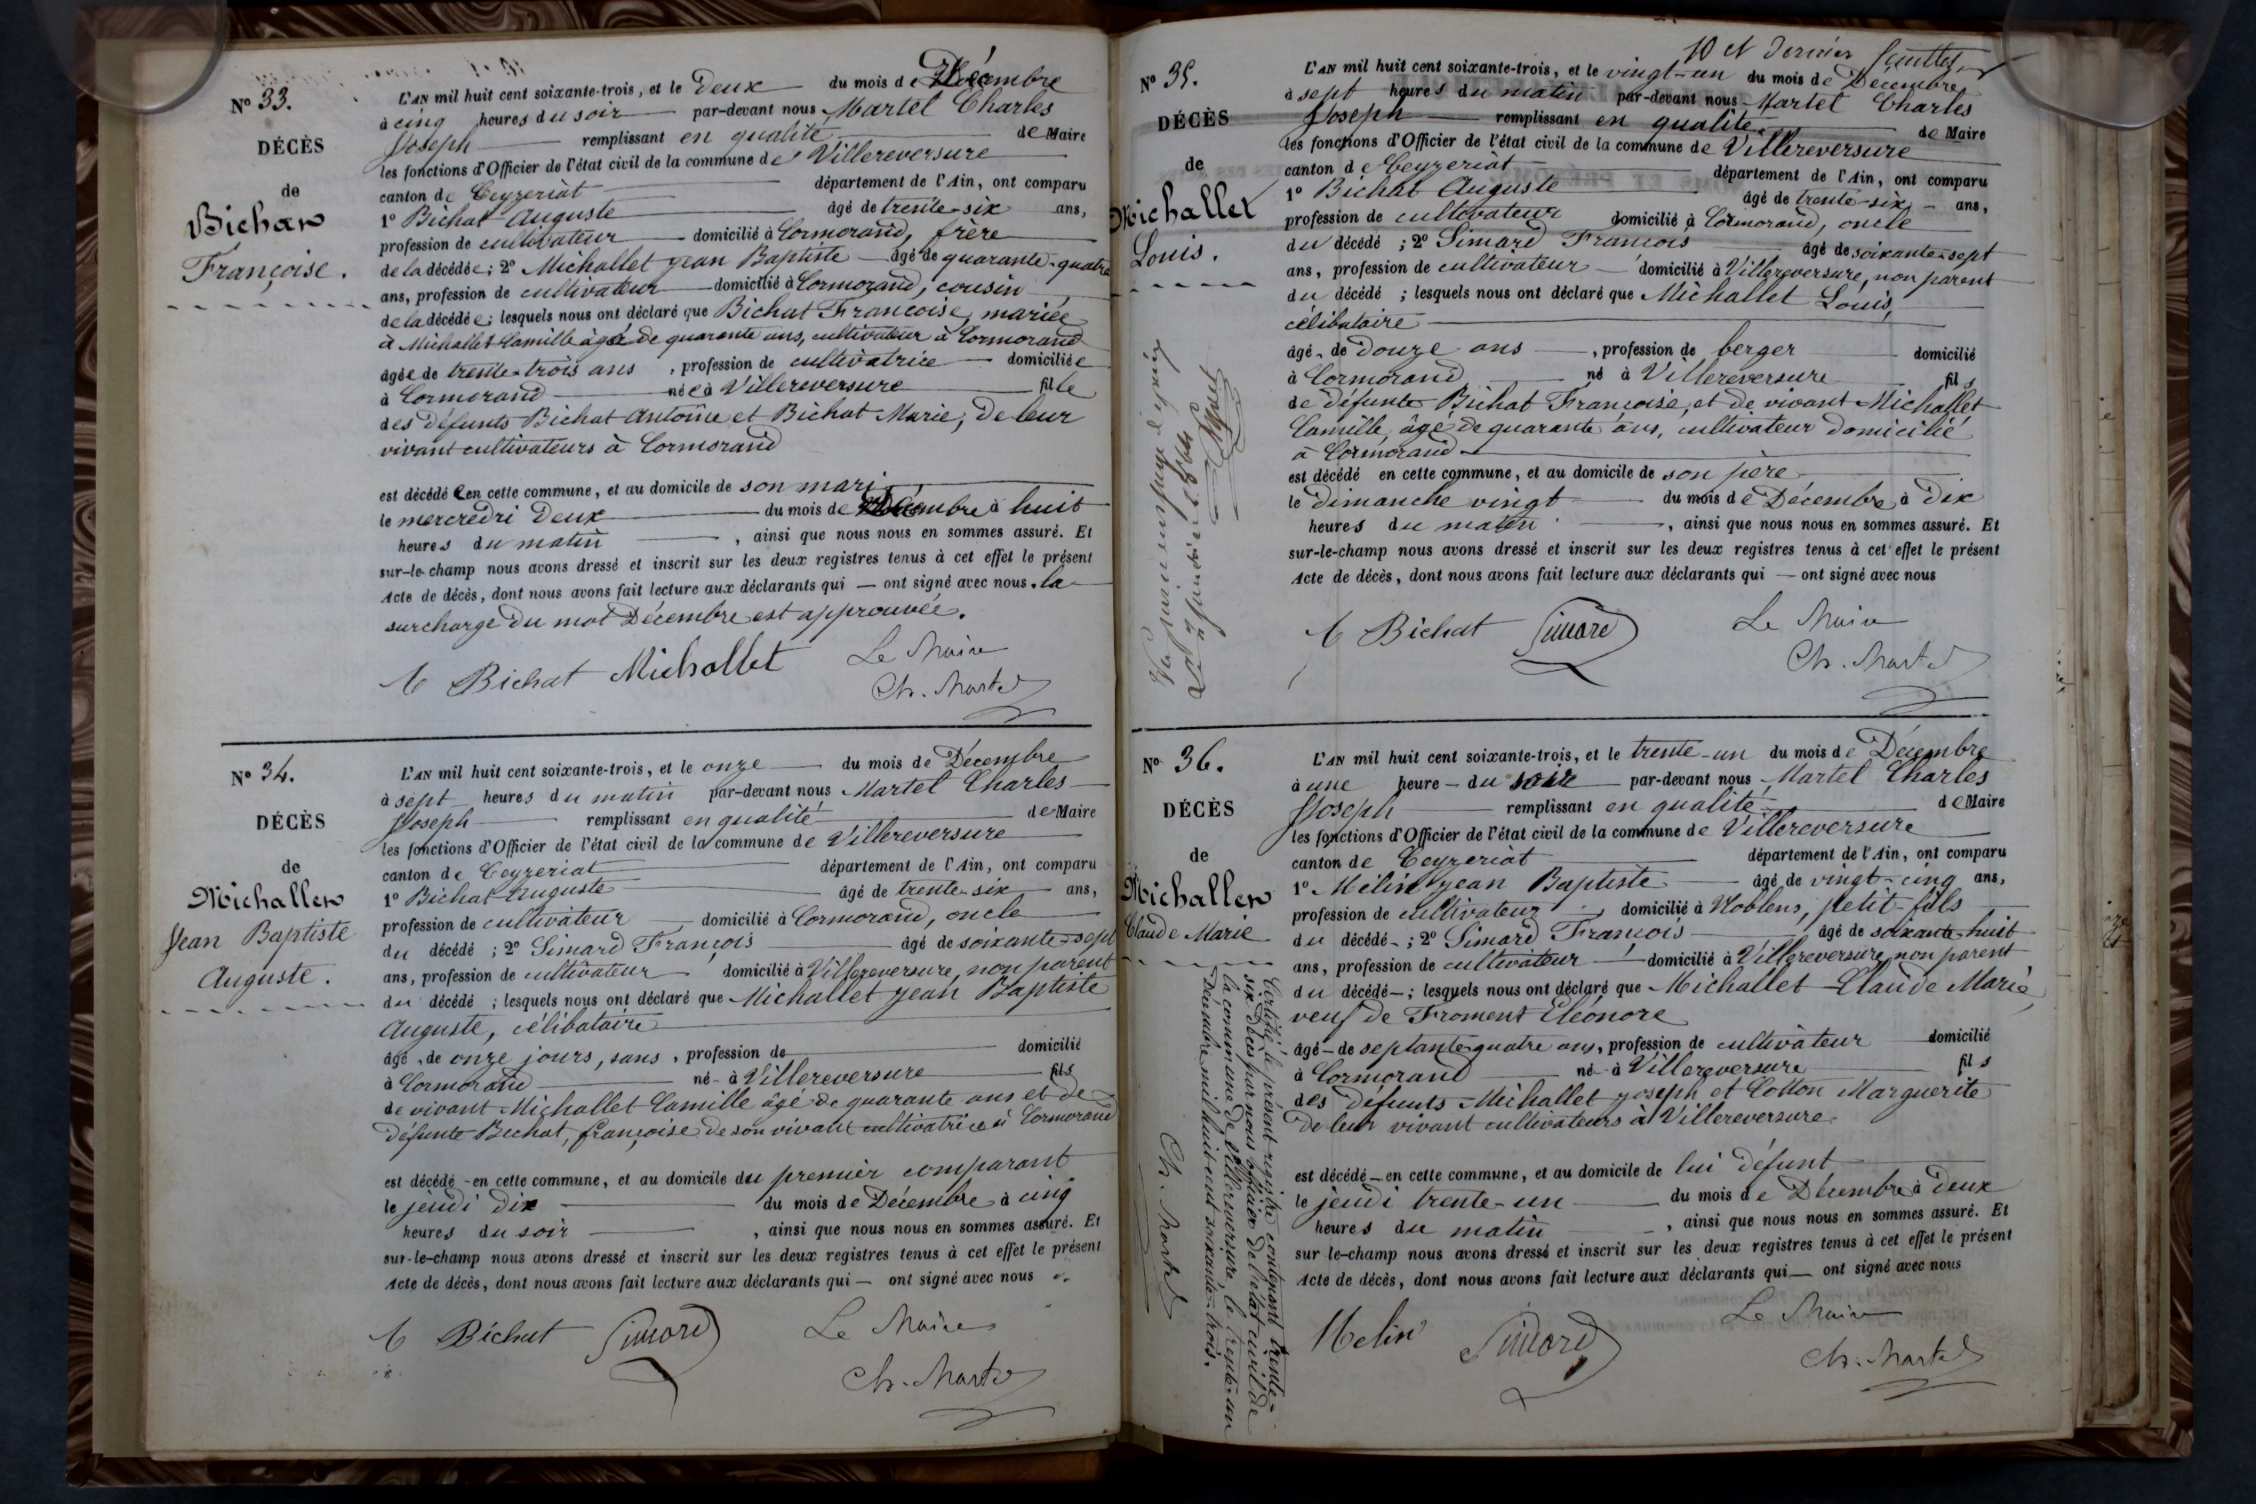 N° 33.
DÉCÈS
de
Bichat
Françoise.
L'AN mil huit cent soixante-trois, et le Deux du mois de Décembre
à cinq heures du soir par-devant nous Martel Charles
Joseph remplissant en qualité de Maire
les fonctions d'Officier de l'état civil de la commune de Villereversure
canton de Ceyzeriat département de l'Ain, ont comparu
1° Bichat Auguste âgé de trente-six ans,
profession de cultivateur domicilié à Cormorand, frère
de la décédée; 2° Michallet Jean Baptiste âgé de quarante-quatre
ans, profession de cultivateur domicilié à Cormorand, cousin
de la décédée; lesquels nous ont déclaré que Bichat Françoise, mariée
à Michallet Camille âgé de quarante ans, cultivateur à Cormorand
âgée de trente-trois ans, profession de cultivatrice domiciliée
à Cormorand née à Villereversure fille
des défunts Bichat Antoine et Bichat Marie, de leur
vivant cultivateurs à Cormorand
est décédée en cette commune, et au domicile de son mari
le mercredi Deux du mois de Décembre à huit
heures du matin, ainsi que nous nous en sommes assuré. Et
sur-le-champ nous avons dressé et inscrit sur les deux registres tenus à cet effet le présent
Acte de décès, dont nous avons fait lecture aux déclarants qui — ont signé avec nous. la
surcharge du mot Décembre est approuvée.
A Bichat Michallet Le Maire
Ch. Martel
N° 34.
DÉCÈS
de
Michallet
Jean Baptiste
Auguste.
L'AN mil huit cent soixante-trois, et le onze du mois de Décembre
à sept heures du matin par-devant nous Martel Charles
Joseph remplissant en qualité de Maire
les fonctions d'Officier de l'état civil de la commune de Villereversure
canton de Ceyzeriat département de l'Ain, ont comparu
1° Bichat Auguste âgé de trente-six ans,
profession de cultivateur domicilié à Cormorand, oncle
du décédé; 2° Simard François âgé de soixante-sept
ans, profession de cultivateur domicilié à Villereversure, non parent
du décédé; lesquels nous ont déclaré que Michallet Jean Baptiste
Auguste, célibataire
âgé de onze jours, sans, profession de domicilié
à Cormorand né à Villereversure fils
de vivant Michallet Camille âgé de quarante ans et de
défunte Bichat, françoise de son vivant cultivatrice à Cormorand
est décédé en cette commune, et au domicile du premier comparant
le jeudi dix du mois de Décembre à cinq
heures du soir, ainsi que nous nous en sommes assuré. Et
sur-le-champ nous avons dressé et inscrit sur les deux registres tenus à cet effet le présent
Acte de décès, dont nous avons fait lecture aux déclarants qui — ont signé avec nous
A Bichat Simard Le Maire
Ch. Martel
10 et dernier feuillet
N° 35.
DÉCÈS
de
Michallet
Louis.
L'AN mil huit cent soixante-trois, et le vingt-un du mois de Décembre
à sept heures du matin par-devant nous Martel Charles
Joseph remplissant en qualité de Maire
les fonctions d'Officier de l'état civil de la commune de Villereversure
canton de Ceyzeriat département de l'Ain, ont comparu
1° Bichat Auguste âgé de trente-six ans,
profession de cultivateur domicilié à Cormorand, oncle
du décédé; 2° Simard François âgé de soixante-sept
ans, profession de cultivateur domicilié à Villereversure, non parent
du décédé; lesquels nous ont déclaré que Michallet Louis,
célibataire
âgé de douze ans, profession de berger domicilié
à Cormorand né à Villereversure fils
de défunte Bichat Françoise, et de vivant Michallet
Camille âgé de quarante ans, cultivateur domicilié
à Cormorand
est décédé en cette commune, et au domicile de son père
le dimanche vingt du mois de Décembre à dix
heures du matin, ainsi que nous nous en sommes assuré. Et
sur-le-champ nous avons dressé et inscrit sur les deux registres tenus à cet effet le présent
Acte de décès, dont nous avons fait lecture aux déclarants qui — ont signé avec nous
A Bichat Simard Le Maire
Ch. Martel
N° 36.
DÉCÈS
de
Michallet
Claude Marie
L'AN mil huit cent soixante-trois, et le trente-un du mois de Décembre
à une heure du soir par-devant nous Martel Charles
Joseph remplissant en qualité de Maire
les fonctions d'Officier de l'état civil de la commune de Villereversure
canton de Ceyzeriat département de l'Ain, ont comparu
1° Mélin Jean Baptiste âgé de vingt-cinq ans,
profession de cultivateur domicilié à Noblens, petit-fils
du décédé; 2° Simard François âgé de soixante-huit
ans, profession de cultivateur domicilié à Villereversure, non parent
du décédé; lesquels nous ont déclaré que Michallet Claude Marie
veuf de Froment Eléonore
âgé de septante-quatre ans, profession de cultivateur domicilié
à Cormorand né à Villereversure fils
des défunts Michallet Joseph et Cotton Marguerite
de leur vivant cultivateurs à Villereversure
est décédé en cette commune, et au domicile de lui défunt
le jeudi trente-un du mois de Décembre à deux
heures du matin, ainsi que nous nous en sommes assuré. Et
sur-le-champ nous avons dressé et inscrit sur les deux registres tenus à cet effet le présent
Acte de décès, dont nous avons fait lecture aux déclarants qui — ont signé avec nous
Melin Simard Le Maire
Ch. Martel
Certifié le présent registre contenant trente-
six décès par nous officier de l'état civil de
la commune de Villereversure, le trente-un
Décembre mil huit cent soixante-trois.
Ch. Martel